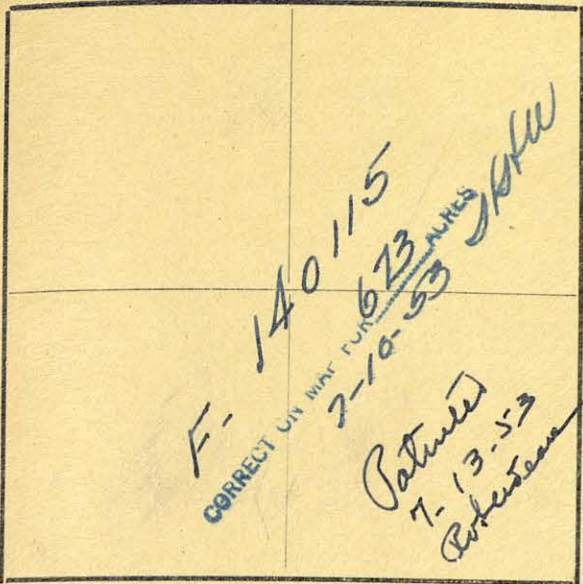 F- 140115
CORRECT ON MAP FOR 673 ACRES
7-10-53
Patented
7-13-53